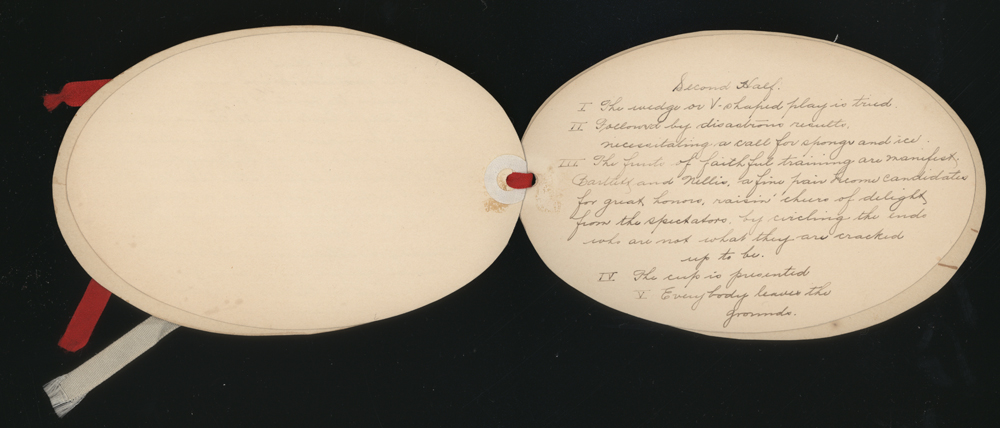 Second Half.
I The wedge or V-shaped play is tried.
II Followed by disastrous results,
necessitating a call for sponge and ice.
III The fruits of faithful training are manifest,
Bartlett and Nellis, a fine pair become candidates
for great honors, raisin' cheers of delight
from the spectators, by circling the ends
who are not what they are cracked
up to be.
IV The cup is presented
V Everybody leaves the
grounds.